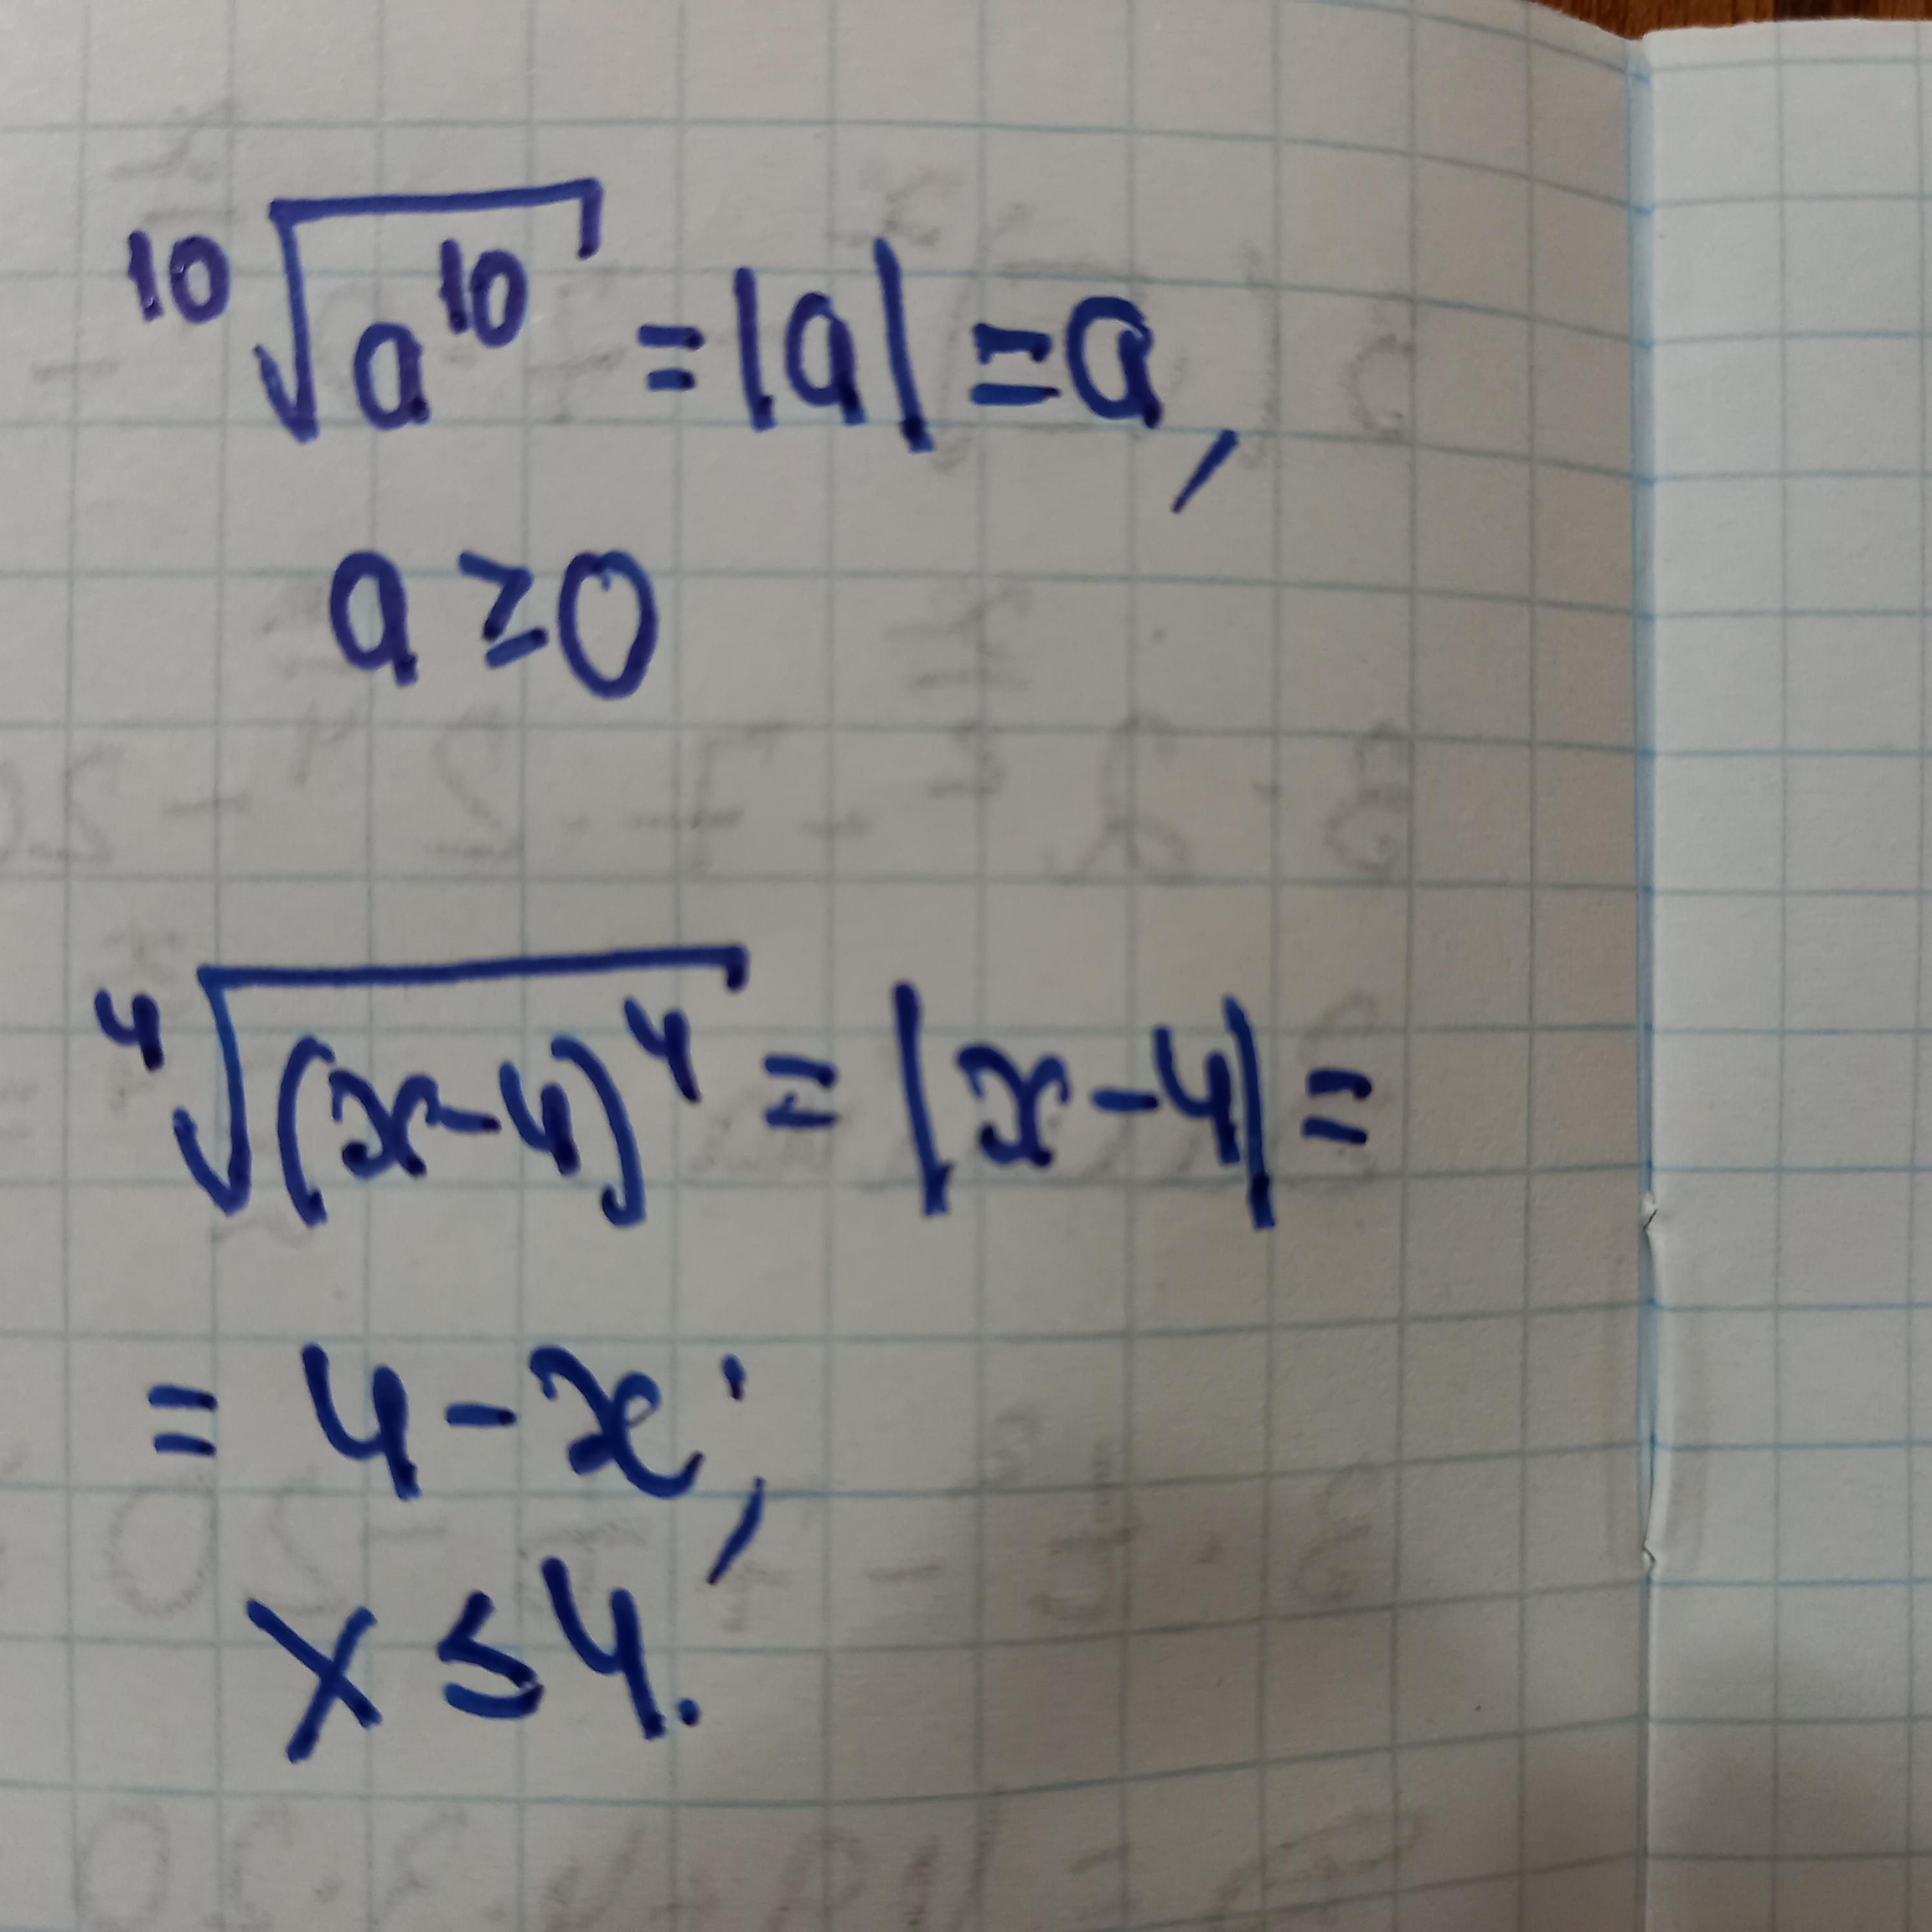 ¹⁰√a¹⁰ = |a| = a,
a ≥ 0
⁴√(x-4)⁴ = |x-4| =
= 4 - x;
x ≤ 4.